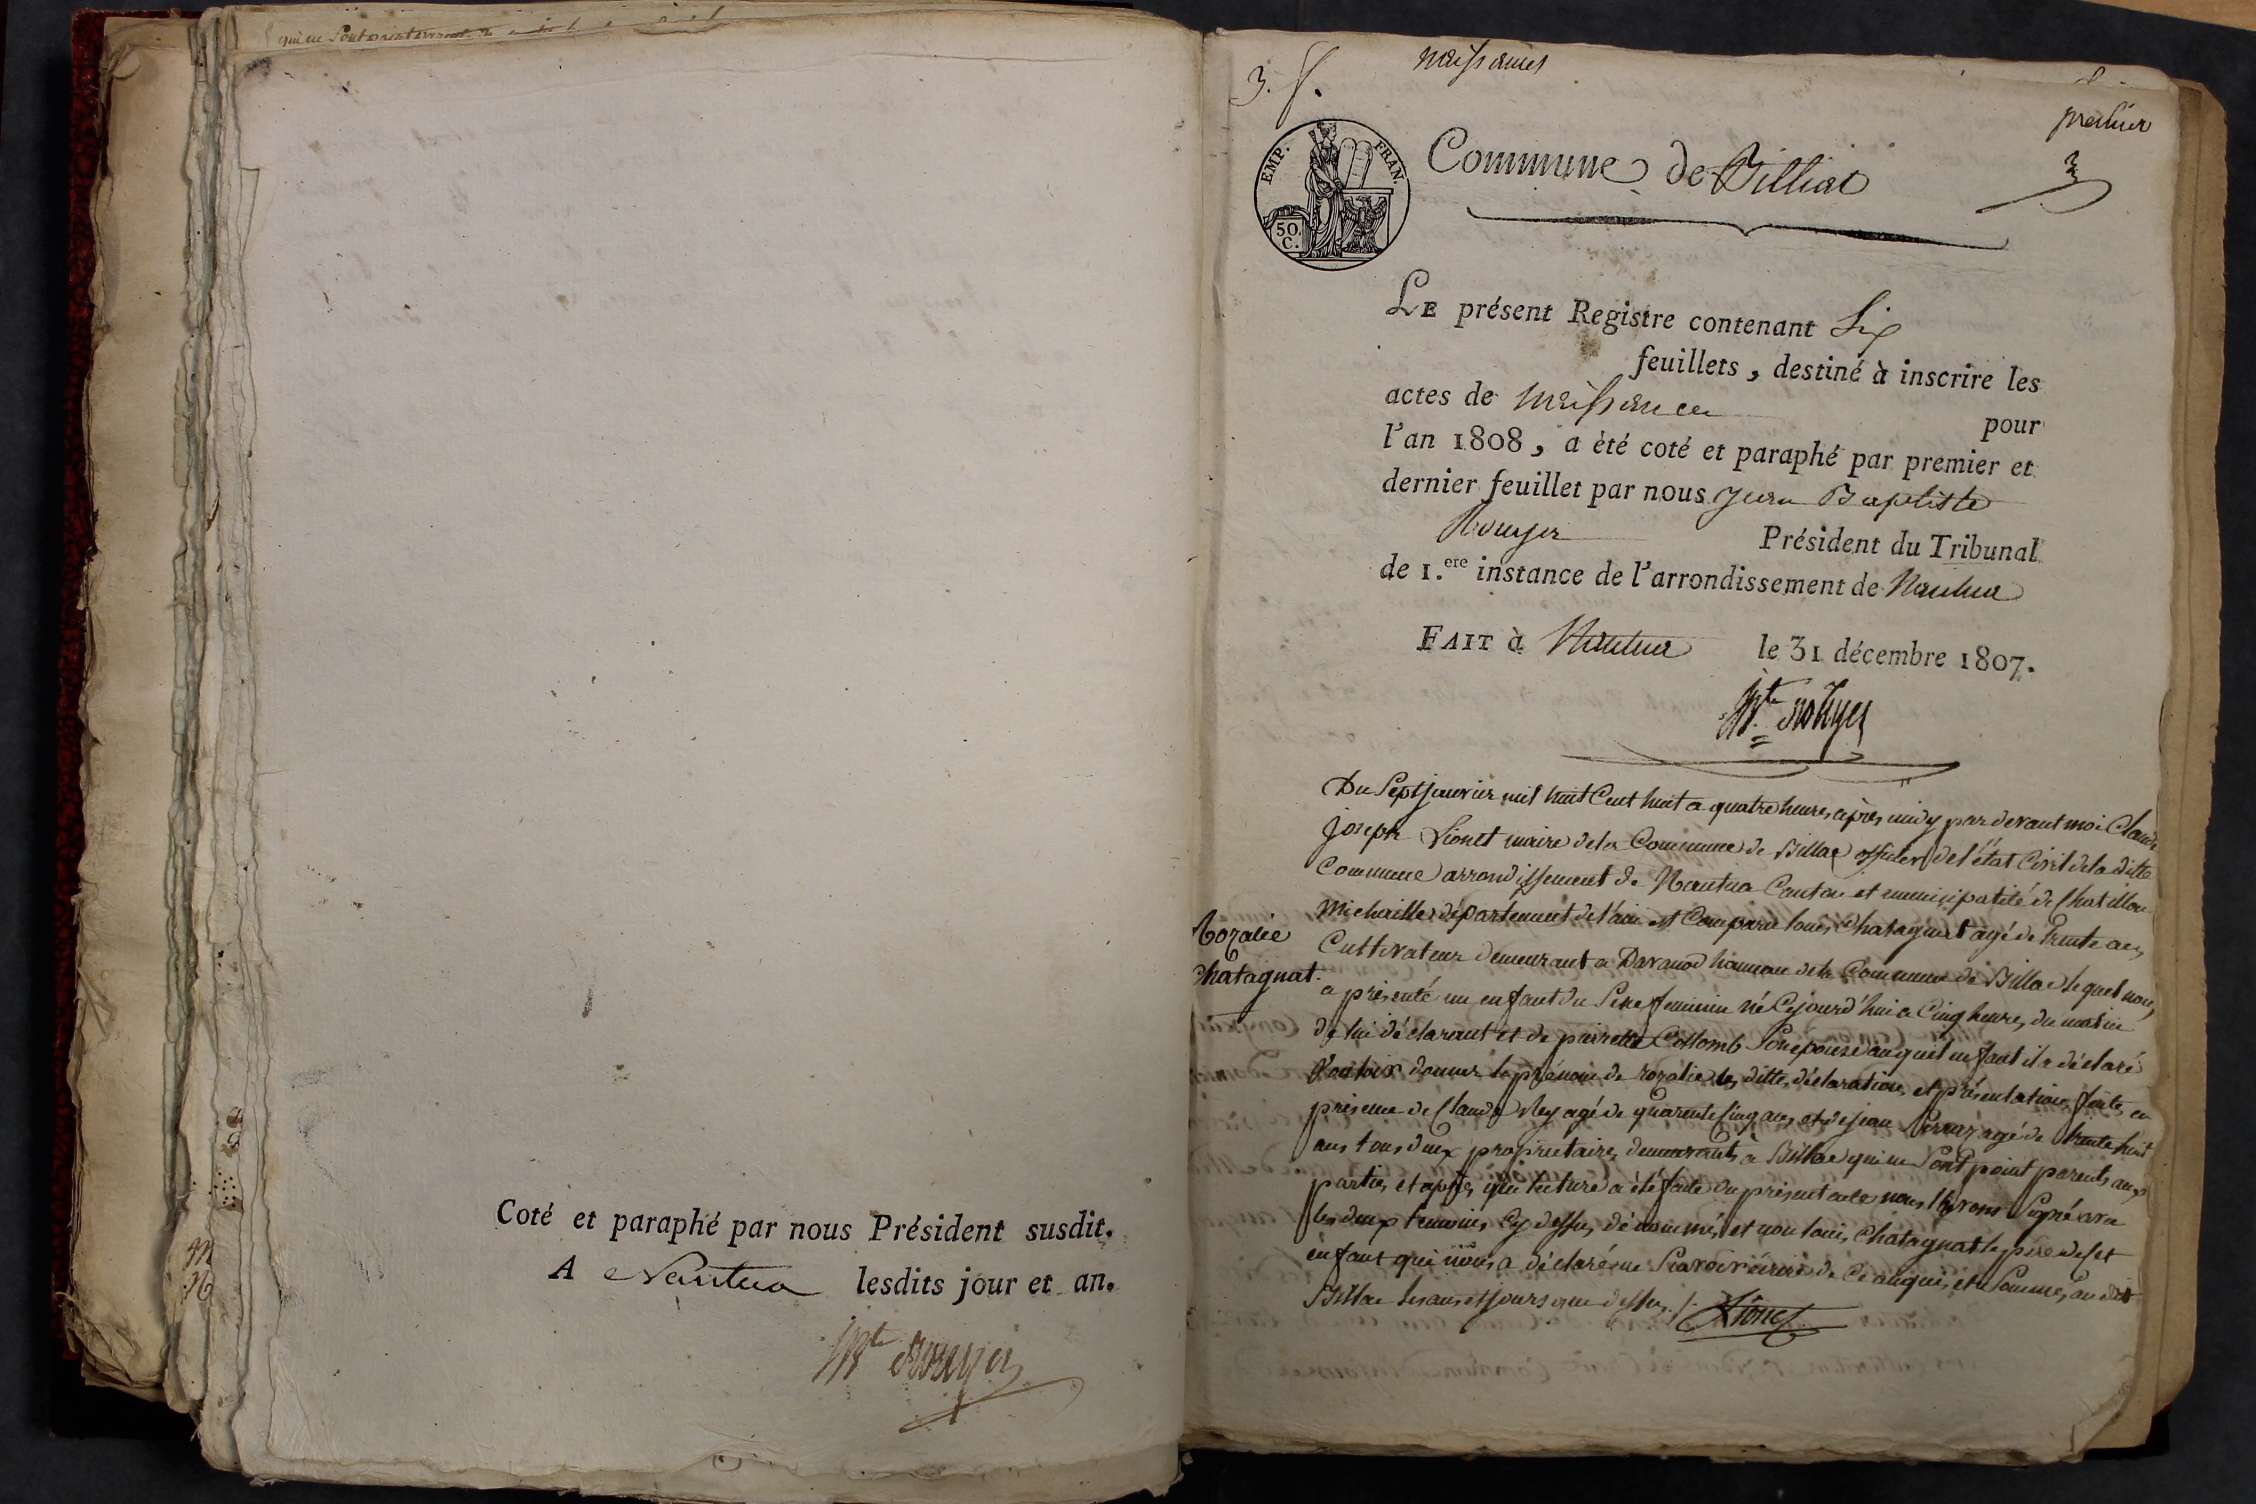 Coté et paraphé par nous Président susdit.
A Nantua lesdits jour et an.
Jn Bte Rouyer
3.
naissances
premier
3
EMP. FRAN.
50.
C.
Commune de Billiat
LE présent Registre contenant Six
feuillets, destiné à inscrire les
actes de naissances pour
l'an 1808, a été coté et paraphé par premier et
dernier feuillet par nous Jean Baptiste
Rouyer Président du Tribunal
de 1.ere instance de l'arrondissement de Nantua
FAIT à Nantua le 31 décembre 1807.
Jn Bte Rouyer
Rozalie
Chatagnat.
Du Sept janvier mil huit Cent huit a quatre heures après midy par devant moi Claude
joseph Lionet maire de la Commune de Billac officier de l'état Civil de la ditte
Commune arrondissement de Nantua Canton et municipalité de Chatillon
Michaille département de l'ain est Comparu louis Chatagnat agé de trente ans
Cultivateur demeurant a Davanod hameau de la Commune de Billac lequel nous
a présenté un enfant du Sexe feminin né Cejourd'hui a Cinq heures du matin
de lui déclarant et de pierrette Collomb Son epouse auquel enfant il a déclaré
Vouloir donner le prénom de rozalie les dittes déclaration et présentation faite en
présence de Claude Rey agé de quarente Cinq ans et de jean Perraz agé de trente huit
ans tous deux proprietaires demeurants à Billac qui ne Sont point parents aux
parties et après que lecture a été faite du présent acte nous l'avons Signé avec
les deux temoins Cy dessus dénommés et non louis Chatagnat le père de Cet
enfant qui nous a déclaré ne Scavoir écrire de Ce enquis et Sommé au dit
Billac les ans et jours que dessus. Lionet